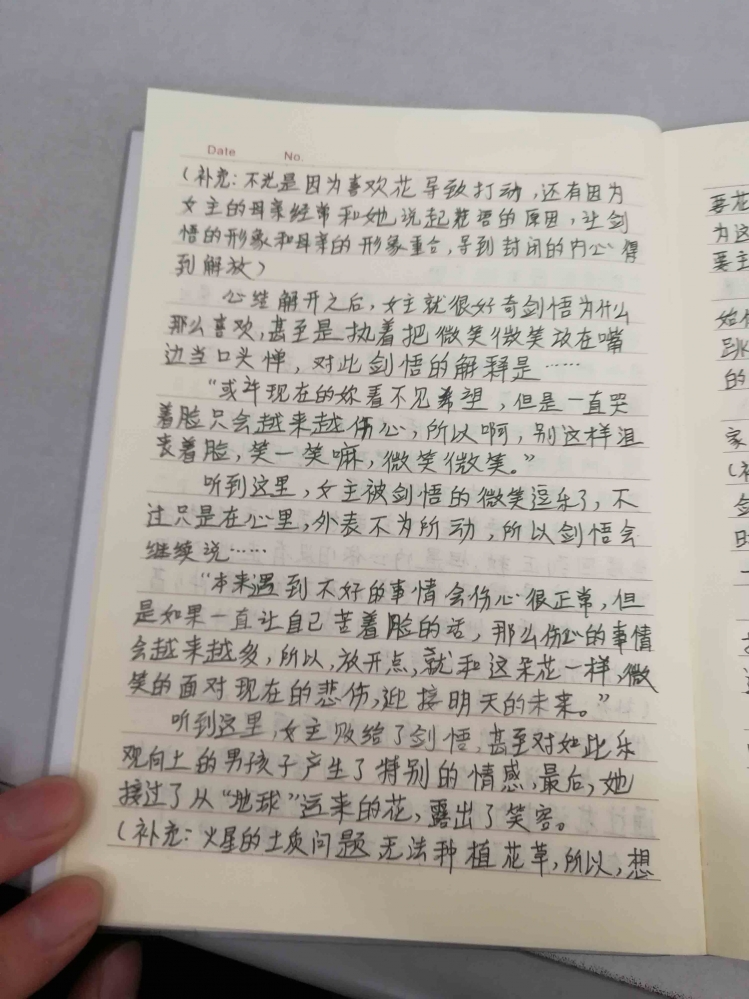 Date No.
(补充:不光是因为喜欢花导致打动,还有因为
女主的母亲经常和她说起花语的原因,让剑
悟的形象和母亲的形象重合,导到封闭的内心得
到解放)
心结解开之后,女主就很好奇剑悟为什么
那么喜欢,甚至是执着把微笑微笑放在嘴
边当口头惮,对此剑悟的解释是……
“或许现在的妳看不见希望,但是一直哭
着脸只会越来越伤心,所以啊,别这样沮
丧着脸,笑一笑嘛,微笑微笑。”
听到这里,女主被剑悟的微笑逗乐了,不
过只是在心里,外表不为所动,所以剑悟会
继续说……
“本来遇到不好的事情会伤心很正常,但
是如果一直让自己苦着脸的话,那么伤心的事情
会越来越多,所以,放开点,就和这朵花一样,微
笑的面对现在的悲伤,迎接明天的未来。”
听到这里,女主败给了剑悟,甚至对如此乐
观向上的男孩子产生了特别的情感,最后,她
接过了从“地球”运来的花,露出了笑容。
(补充:火星的土质问题无法种植花草,所以,想
要花
为这
要主
的
家